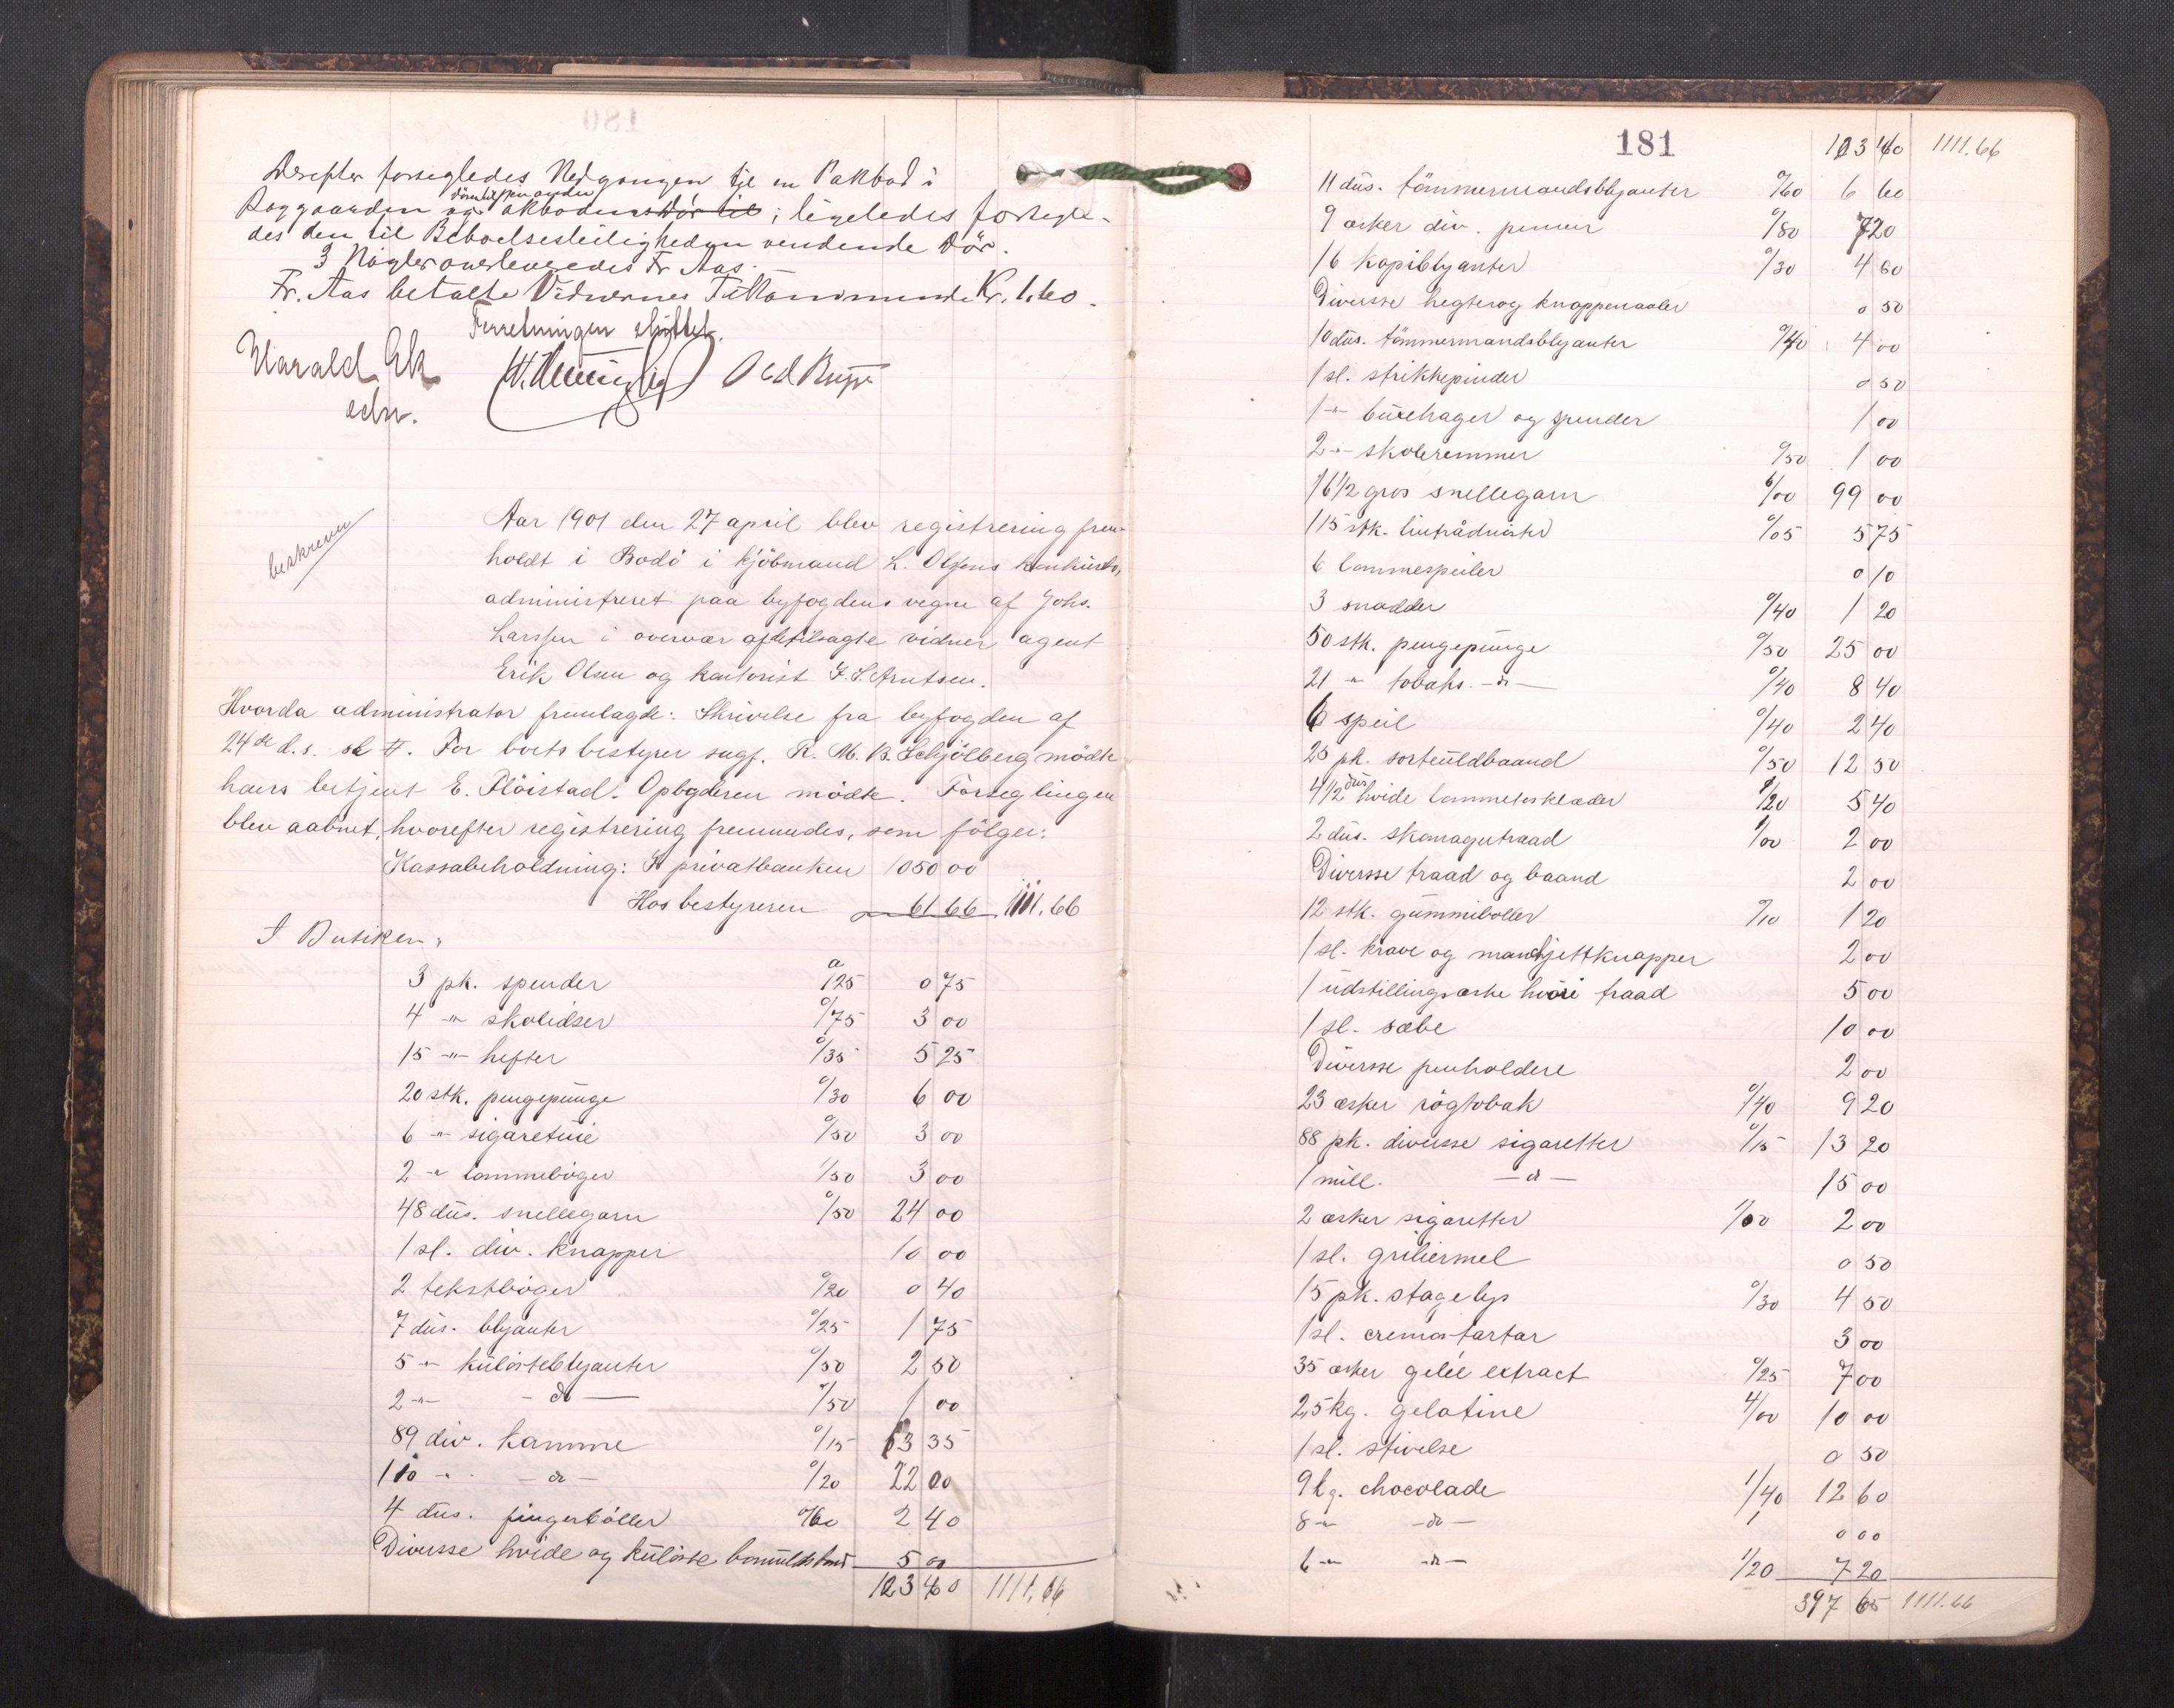 Derefter forsegledes Nedgangen til en Pakbod i
Baggaarden og ; ligeledes forsegle-
des den til Beboelsesleiligheden vendende Dör.
3 Nögler overleveredes Fr. Aas.
Fr. Aas betalte Vidnernes Tilkommende Kr. 1.60.
Forretningen sluttet.
Harald Ek
edsv.
beskreven
Aar 1901 den 27 april blev registrering frem-
holdt i Bodö i kjöbmand L. Olsens konkursbo,
administreret paa byfogdens vegne af Johs.
Larssen i overvær af tilsagte vidner agent
Erik Olsen og kontorist F. S. Arntsen.
Hvorda administrator fremlagde: Skrivelse fra byfogden af
24de d.s. For boets bestyrer sagf. R. M. B. Schjölberg mödte
hans betjent E. Flöistad. Opbyderen mödte. Forseglingen
blev aabnet, hvorefter registrering fremmedes, som fölger:
Kassabeholdning: I privatbanken 1050 00
Hos bestyreren 61 66 1111.66
I Butiken:
3 pk. spender a /25 0 75
4 -"- skolidser 0/75 3 00
15 -"- hefter 0/35 5 25
20 stk. pengepunge 0/30 6 00
6 -"- sigaretuie 0/50 3 00
2 -"- lommebøger 1/50 3 00
48 dus. snellegarn 0/50 24 00
1 sl. div. knapper 10 00
2 tekstbøger 0/20 0 40
7 dus. blyanter 0/25 1 75
5 -"- kulörteblyanter 0/50 2 50
2 -"- - do - 0/50 1 00
89 div. kamme 0/15 13 35
110 -"- - do - 0/20 22 00
4 dus. fingerböller 0/60 2 40
Diverse hvide og kulörte bomuldsbaand 5 00
123 40 1111.66
181
123 40 1111.66
11 dus. tömmermandsblyanter 0/60 6 60
9 æsker div. penner 0/80 7 20
16 kopiblyanter 0/30 4 80
Diversse hegter og knappenaaler 0 50
10 dus. tömmermandsblyanter 0/40 4 00
1 sl. strikkepinder 0 50
1 -"- buxehager og spender 1 00
2 -"- skoleremmer 0/50 1 00
16 1/2 gros snellegarn 6/00 99 00
115 stk. lintrådnöster 0/05 5 75
6 lommespeiler 0 10
3 snadder 0/40 1 20
50 stk. pengepunge 0/50 25 00
21 " tobaks - do - 0/40 8 40
6 speil 0/40 2 40
25 pk. sorteuldbaand 0/50 12 50
4 1/2 dus hvide lommetørklæder 1/20 5 40
2 dus. skomagertraad 1/00 2 00
Diversse traad og baand 2 00
12 stk. gummiboller 0/10 1 20
1 sl. krave og manskjettknapper 2 00
1 udstillingsæske hvori traad 5 00
1 sl. sæbe 10 00
Diversse penholdere 2 00
23 æsker rögtobak 0/40 9 20
88 pk. diversse sigaretter 0/15 13 20
1 mill. - do - 15 00
2 æsker sigaretter 1/00 2 00
1 sl. griliermel 0 50
15 pk. stagelys 0/30 4 50
1 sl. cremortartar 3 00
35 æsker gelée extract 0/25 7 00
2,5 kg. gelatine 4/00 10 00
1 sl. stivelse 0 50
9 kg. chocolade 1/40 12 60
8 -"- - do - 0 00
6 -"- - do - 1/20 7 20
397 65 1111.66